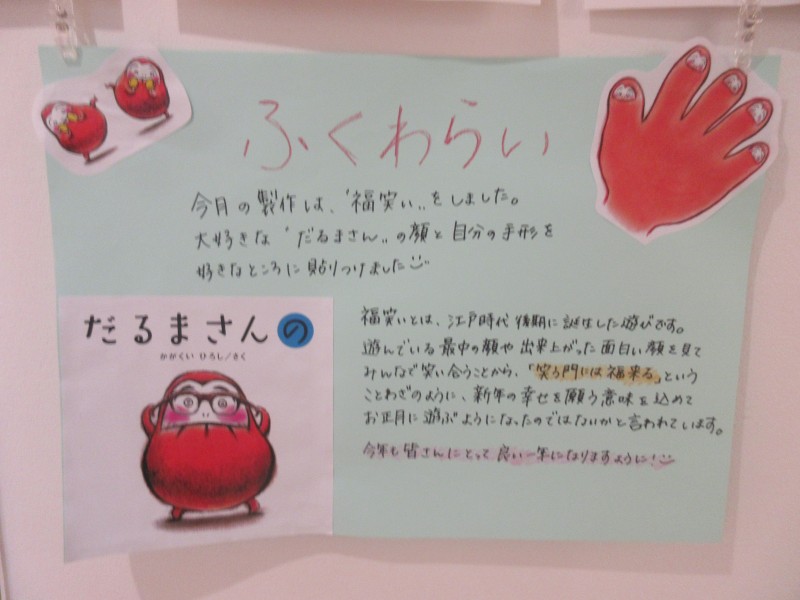 ふくわらい
今月の製作は、"福笑い"をしました。
大好きな"だるまさん"の顔と自分の手形を
好きなところに貼りつけました
だるまさんの
かがくい ひろし/さく
福笑いとは、江戸時代後期に誕生した遊びです。
遊んでいる最中の顔や出来上がった面白い顔を見て
みんなで笑い合うことから、「笑う門には福来る」という
ことわざのように、新年の幸せを願う意味を込めて
お正月に遊ぶようになったのではないかと言われています。
今年も皆さんにとって良い一年になりますように!